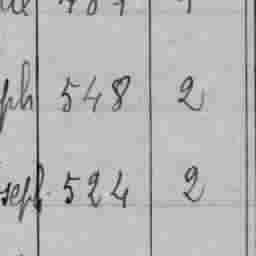 ph 548 2
seph. 524 2